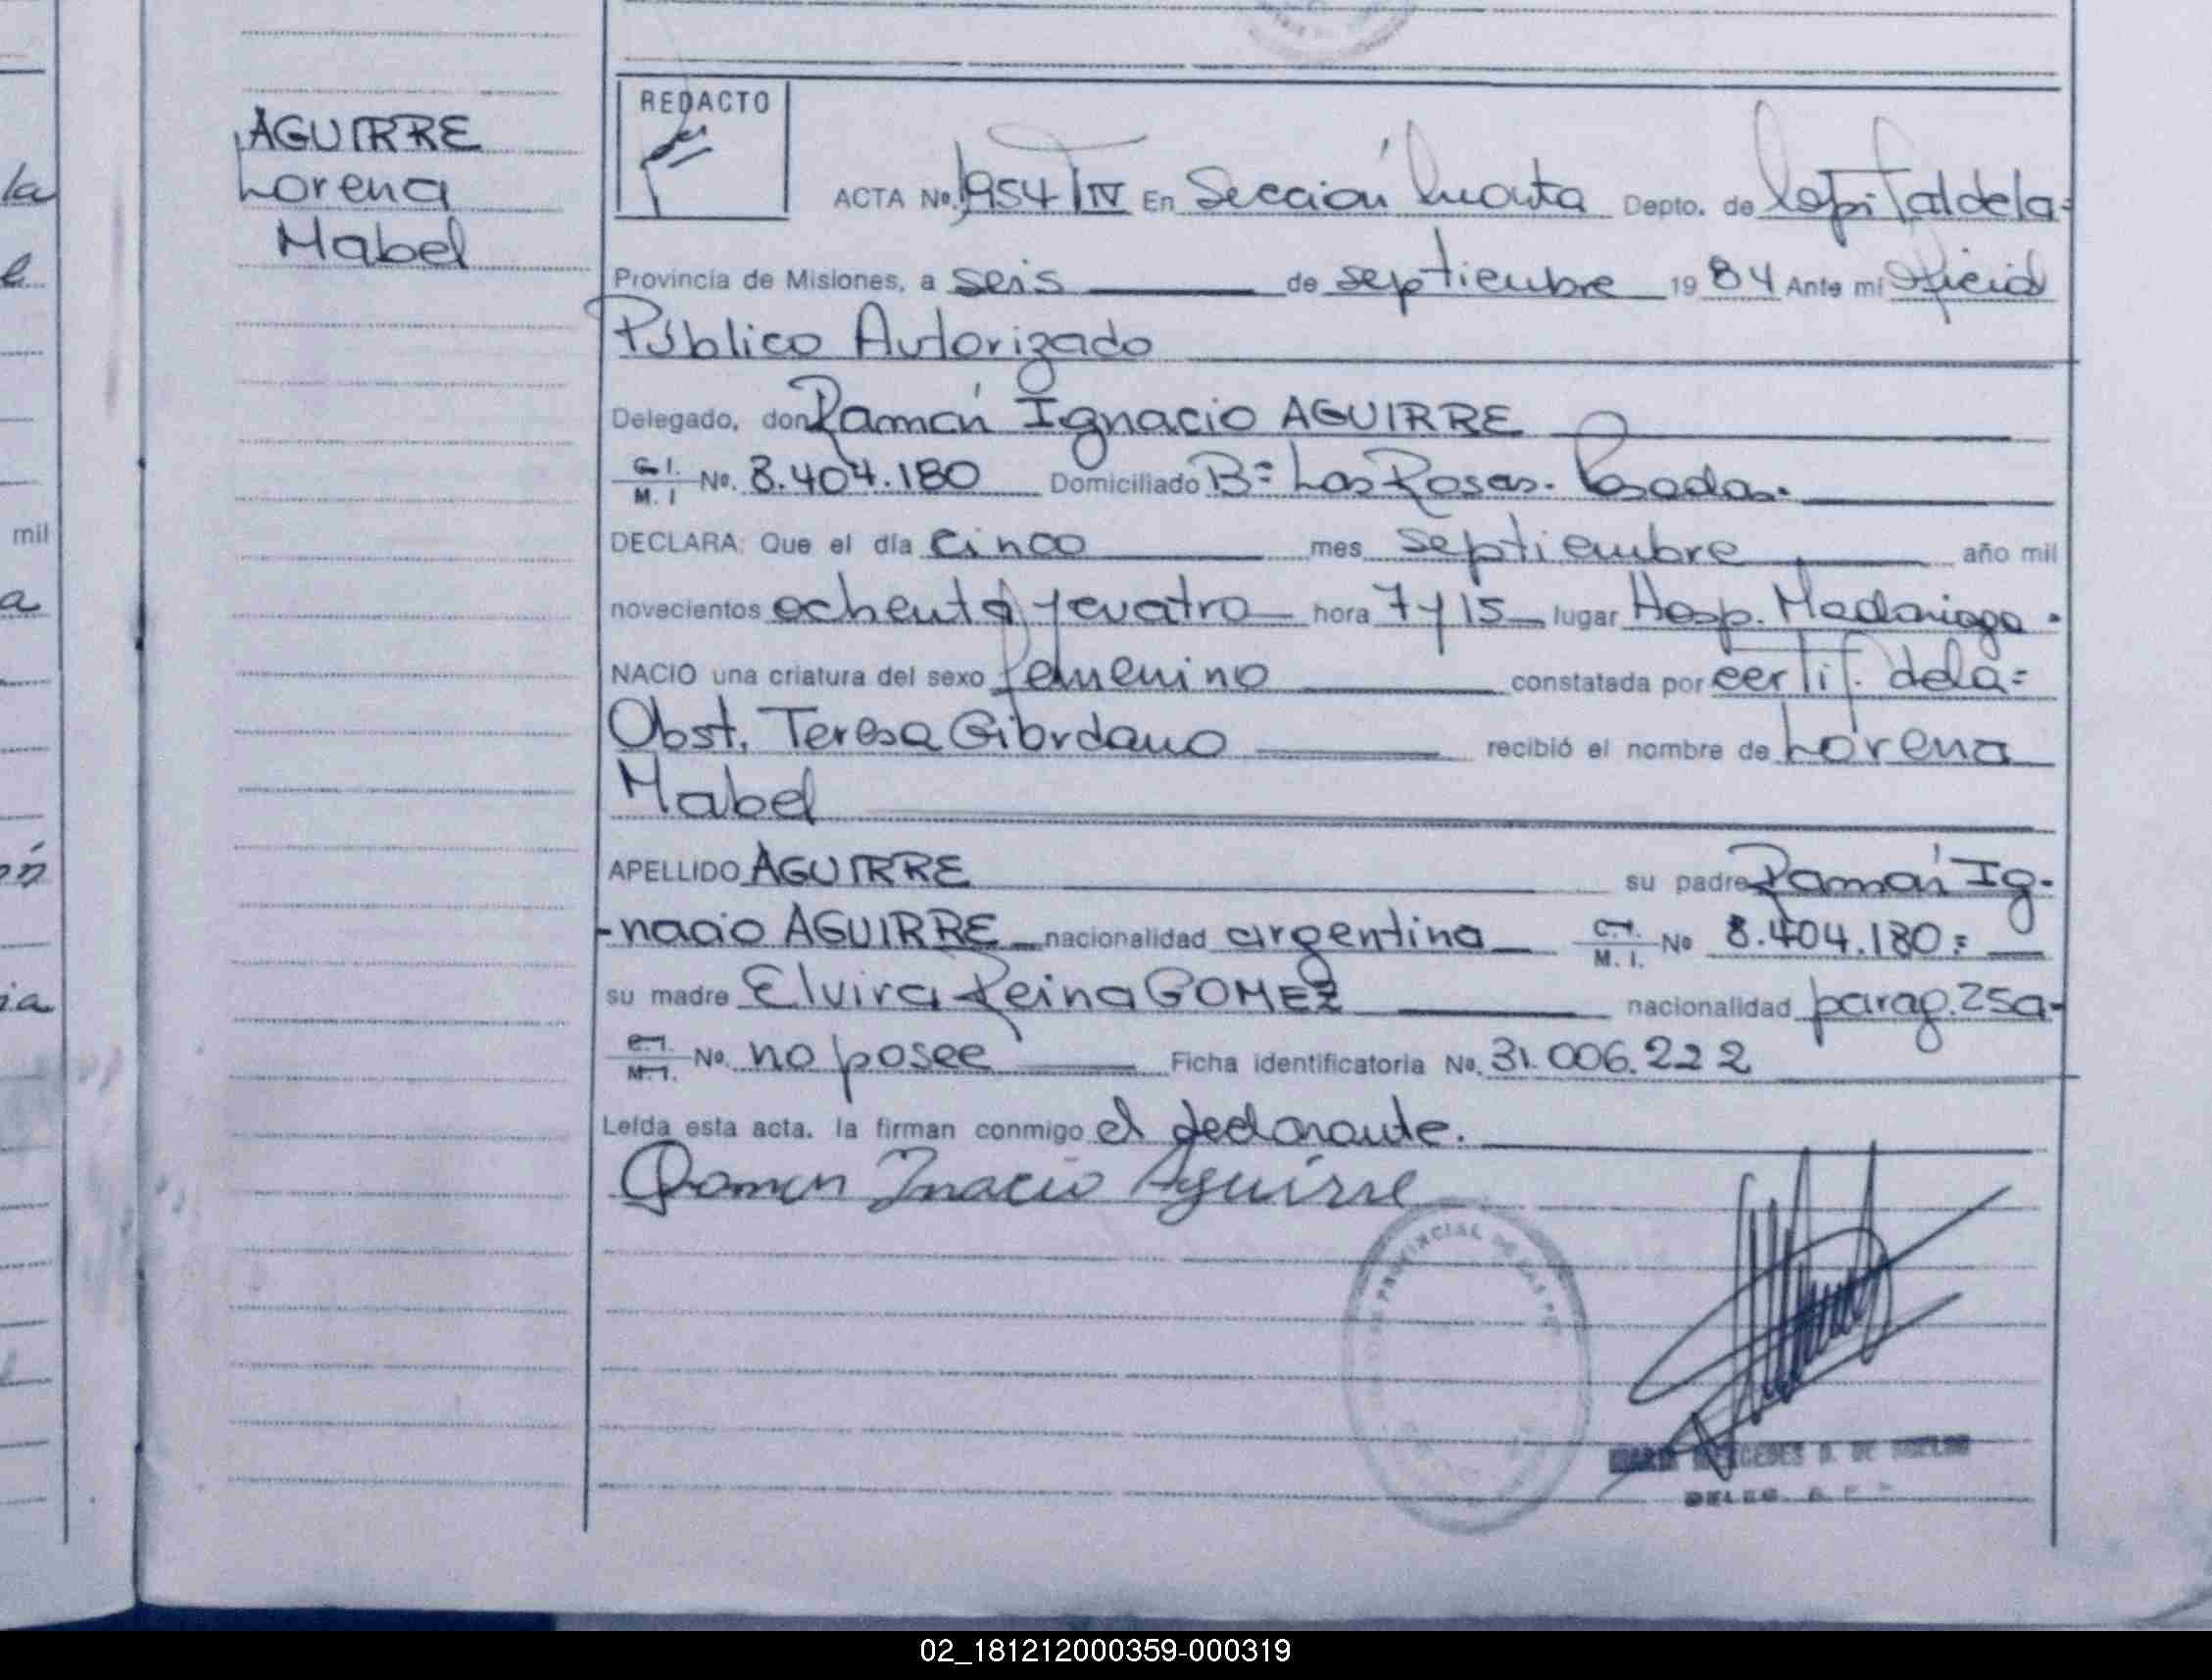 AGUIRRE
Lorena
Mabel
la
e
mil
a
ón
ia
REDACTO
ACTA No. 1954/IV En Sección Cuarta Depto. de Capital de la=
Provincia de Misiones, a seis de septiembre 19 84 Ante mí Oficial
Público Autorizado
Delegado, don Ramón Ignacio AGUIRRE
C. I. M. I No. 8.404.180 Domiciliado B= Las Rosas. Posadas.
DECLARA: Que el día cinco mes septiembre año mil
novecientos ochenta y cuatro hora 7 y 15 lugar Hosp. Madariaga.
NACIO una criatura del sexo femenino constatada por certif. de la=
Obst. Teresa Giordano recibió el nombre de Lorena
Mabel
APELLIDO AGUIRRE su padre Ramón Ig-
-nacio AGUIRRE nacionalidad argentina C. I. M. I. No 8.404.180=
su madre Elvira Reina GOMEZ nacionalidad parag.
C. I. M. I. No. no posee Ficha identificatoria No. 31.006.222
Leída esta acta, la firman conmigo el declarante.
Ramon Inacio Aguirre
PROVINCIAL DE LAS
MARIA MERCEDES DE
DELEG.
02_181212000359-000319